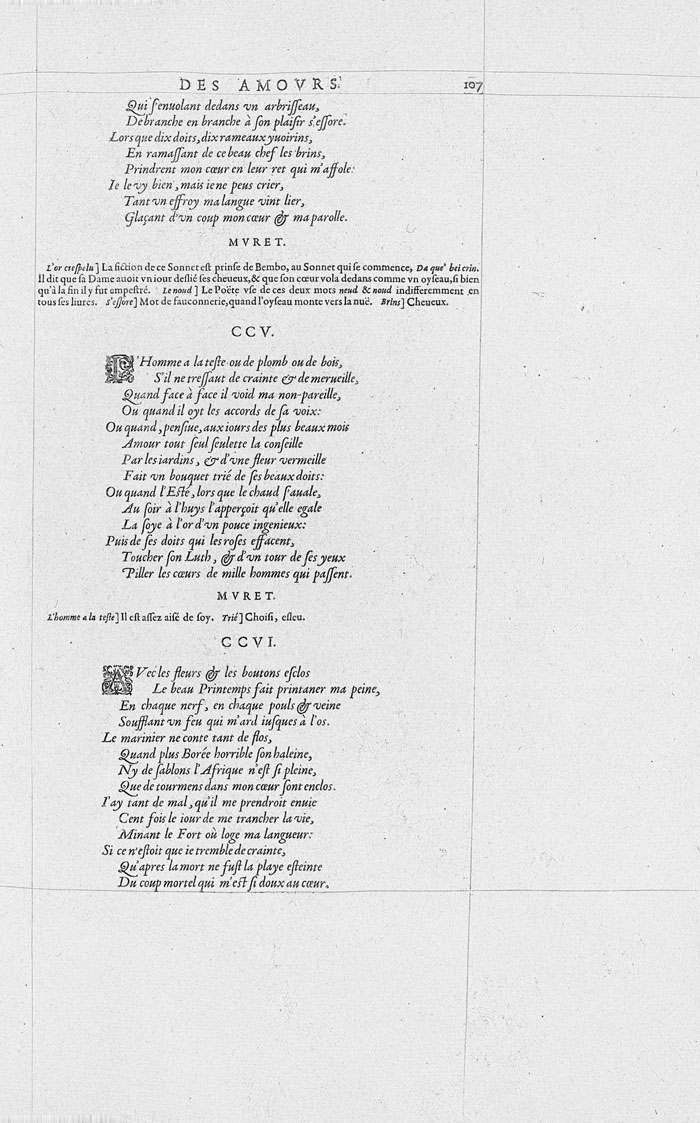 DES AMOVRS. 107
Qui ſ'enuolant dedans vn arbriſſeau,
De branche en branche à ſon plaiſir s'eſſore.
Lors que dix doits, dix rameaux yuoirins,
En ramaſſant de ce beau chef les brins,
Prindrent mon cœur en leur ret qui m'affole:
Ie le vy bien, mais ie ne peus crier,
Tant vn effroy ma langue vint lier,
Glaçant d'vn coup mon cœur & ma parolle.
MVRET.
L'or creſpelu] La fiction de ce Sonnet eſt prinſe de Bembo, au Sonnet qui ſe commence, Da que' bei crin.
Il dit que ſa Dame auoit vn iour deſlié ſes cheueux, & que ſon cœur vola dedans comme vn oyſeau, ſi bien
qu'à la fin il y fut empeſtré. Le noud] Le Poëte vſe de ces deux mots neud & noud indifferemment en
tous ſes liures. s'eſſore] Mot de fauconnerie, quand l'oyſeau monte vers la nuë. Brins] Cheueux.
CCV.
L'Homme a la teſte ou de plomb ou de bois,
S'il ne treſſaut de crainte & de merueille,
Quand face à face il void ma non-pareille,
Ou quand il oyt les accords de ſa voix:
Ou quand, penſiue, aux iours des plus beaux mois
Amour tout ſeul ſeulette la conſeille
Par les iardins, & d'vne fleur vermeille
Fait vn bouquet trié de ſes beaux doits:
Ou quand l'Eſté, lors que le chaud ſ'auale,
Au ſoir à l'huys l'apperçoit qu'elle egale
La ſoye à l'or d'vn pouce ingenieux:
Puis de ſes doits qui les roſes effacent,
Toucher ſon Luth, & d'vn tour de ſes yeux
Piller les cœurs de mille hommes qui paſſent.
MVRET.
L'homme a la teſte] Il eſt aſſez aiſé de ſoy. Trié] Choiſi, eſleu.
CCVI.
AVec les fleurs & les boutons eſclos
Le beau Printemps fait printaner ma peine,
En chaque nerf, en chaque pouls & veine
Soufflant vn feu qui m'ard iuſques à l'os.
Le marinier ne conte tant de flos,
Quand plus Borée horrible ſon haleine,
Ny de ſablons l'Afrique n'eſt ſi pleine,
Que de tourmens dans mon cœur ſont enclos.
I'ay tant de mal, qu'il me prendroit enuie
Cent fois le iour de me trancher la vie,
Minant le Fort où loge ma langueur:
Si ce n'eſtoit que ie tremble de crainte,
Qu'apres la mort ne fuſt la playe eſteinte
Du coup mortel qui m'eſt ſi doux au cœur.